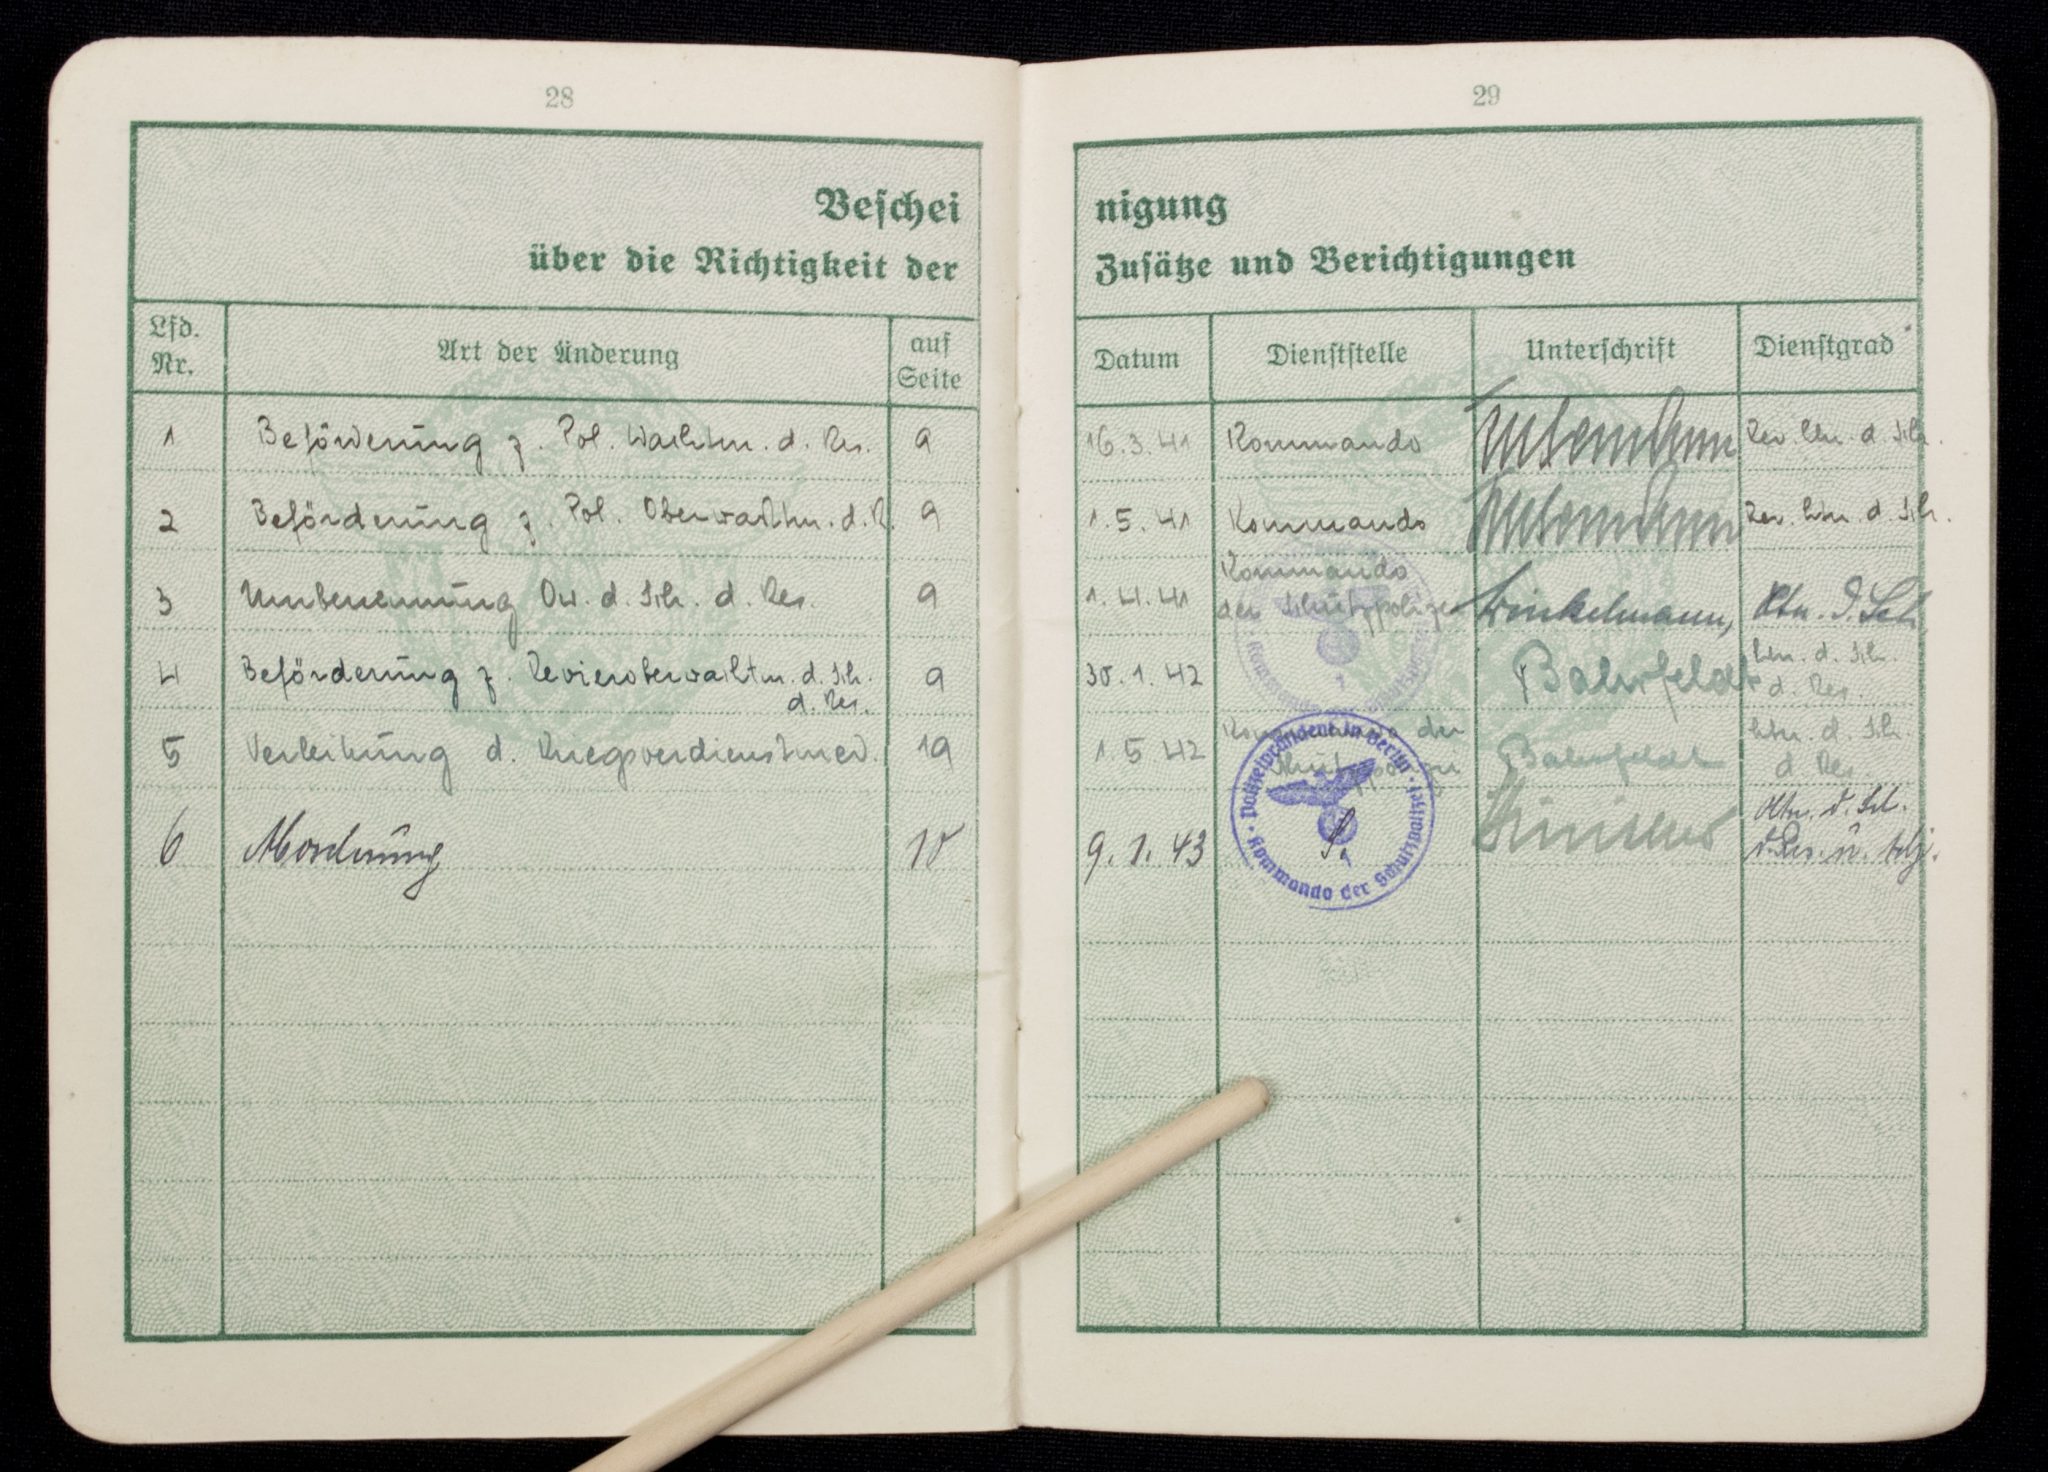 28
Beschei
über die Richtigkeit der
Lfd. Nr.
Art der Änderung
auf Seite
1 Beförderung z. Pol. Wachtm. d. Res. 9
2 Beförderung z. Pol. Oberwachtm. d. R. 9
3 Umbenennung Ow. d. Sch. d. Res. 9
4 Beförderung z. Revieroberwachtm. d. Sch.
d. Res. 9
5 Verleihung d. Kriegsverdienstmed. 19
6 Abordnung 10
29
nigung
Zusätze und Berichtigungen
Datum
Dienststelle
Unterschrift
Dienstgrad
16.3.41 Kommando Rev. Ltn. d. Sch.
1.5.41 Kommando Rev. Ltn. d. Sch.
Kommando
1.4.41 der Schutzpolizei Winkelmann, Ltn. d. Sch.
30.1.42 Bahrfeldt Ltn. d. Sch.
d. Res.
Kommando der
1.5.42 Schutzpolizei Bahrfeldt Ltn. d. Sch.
d. Res.
9.1.43 Oltn. d. Sch.
d. Res. u.
Polizeipräsident in Berlin
Kommando der Schutzpolizei